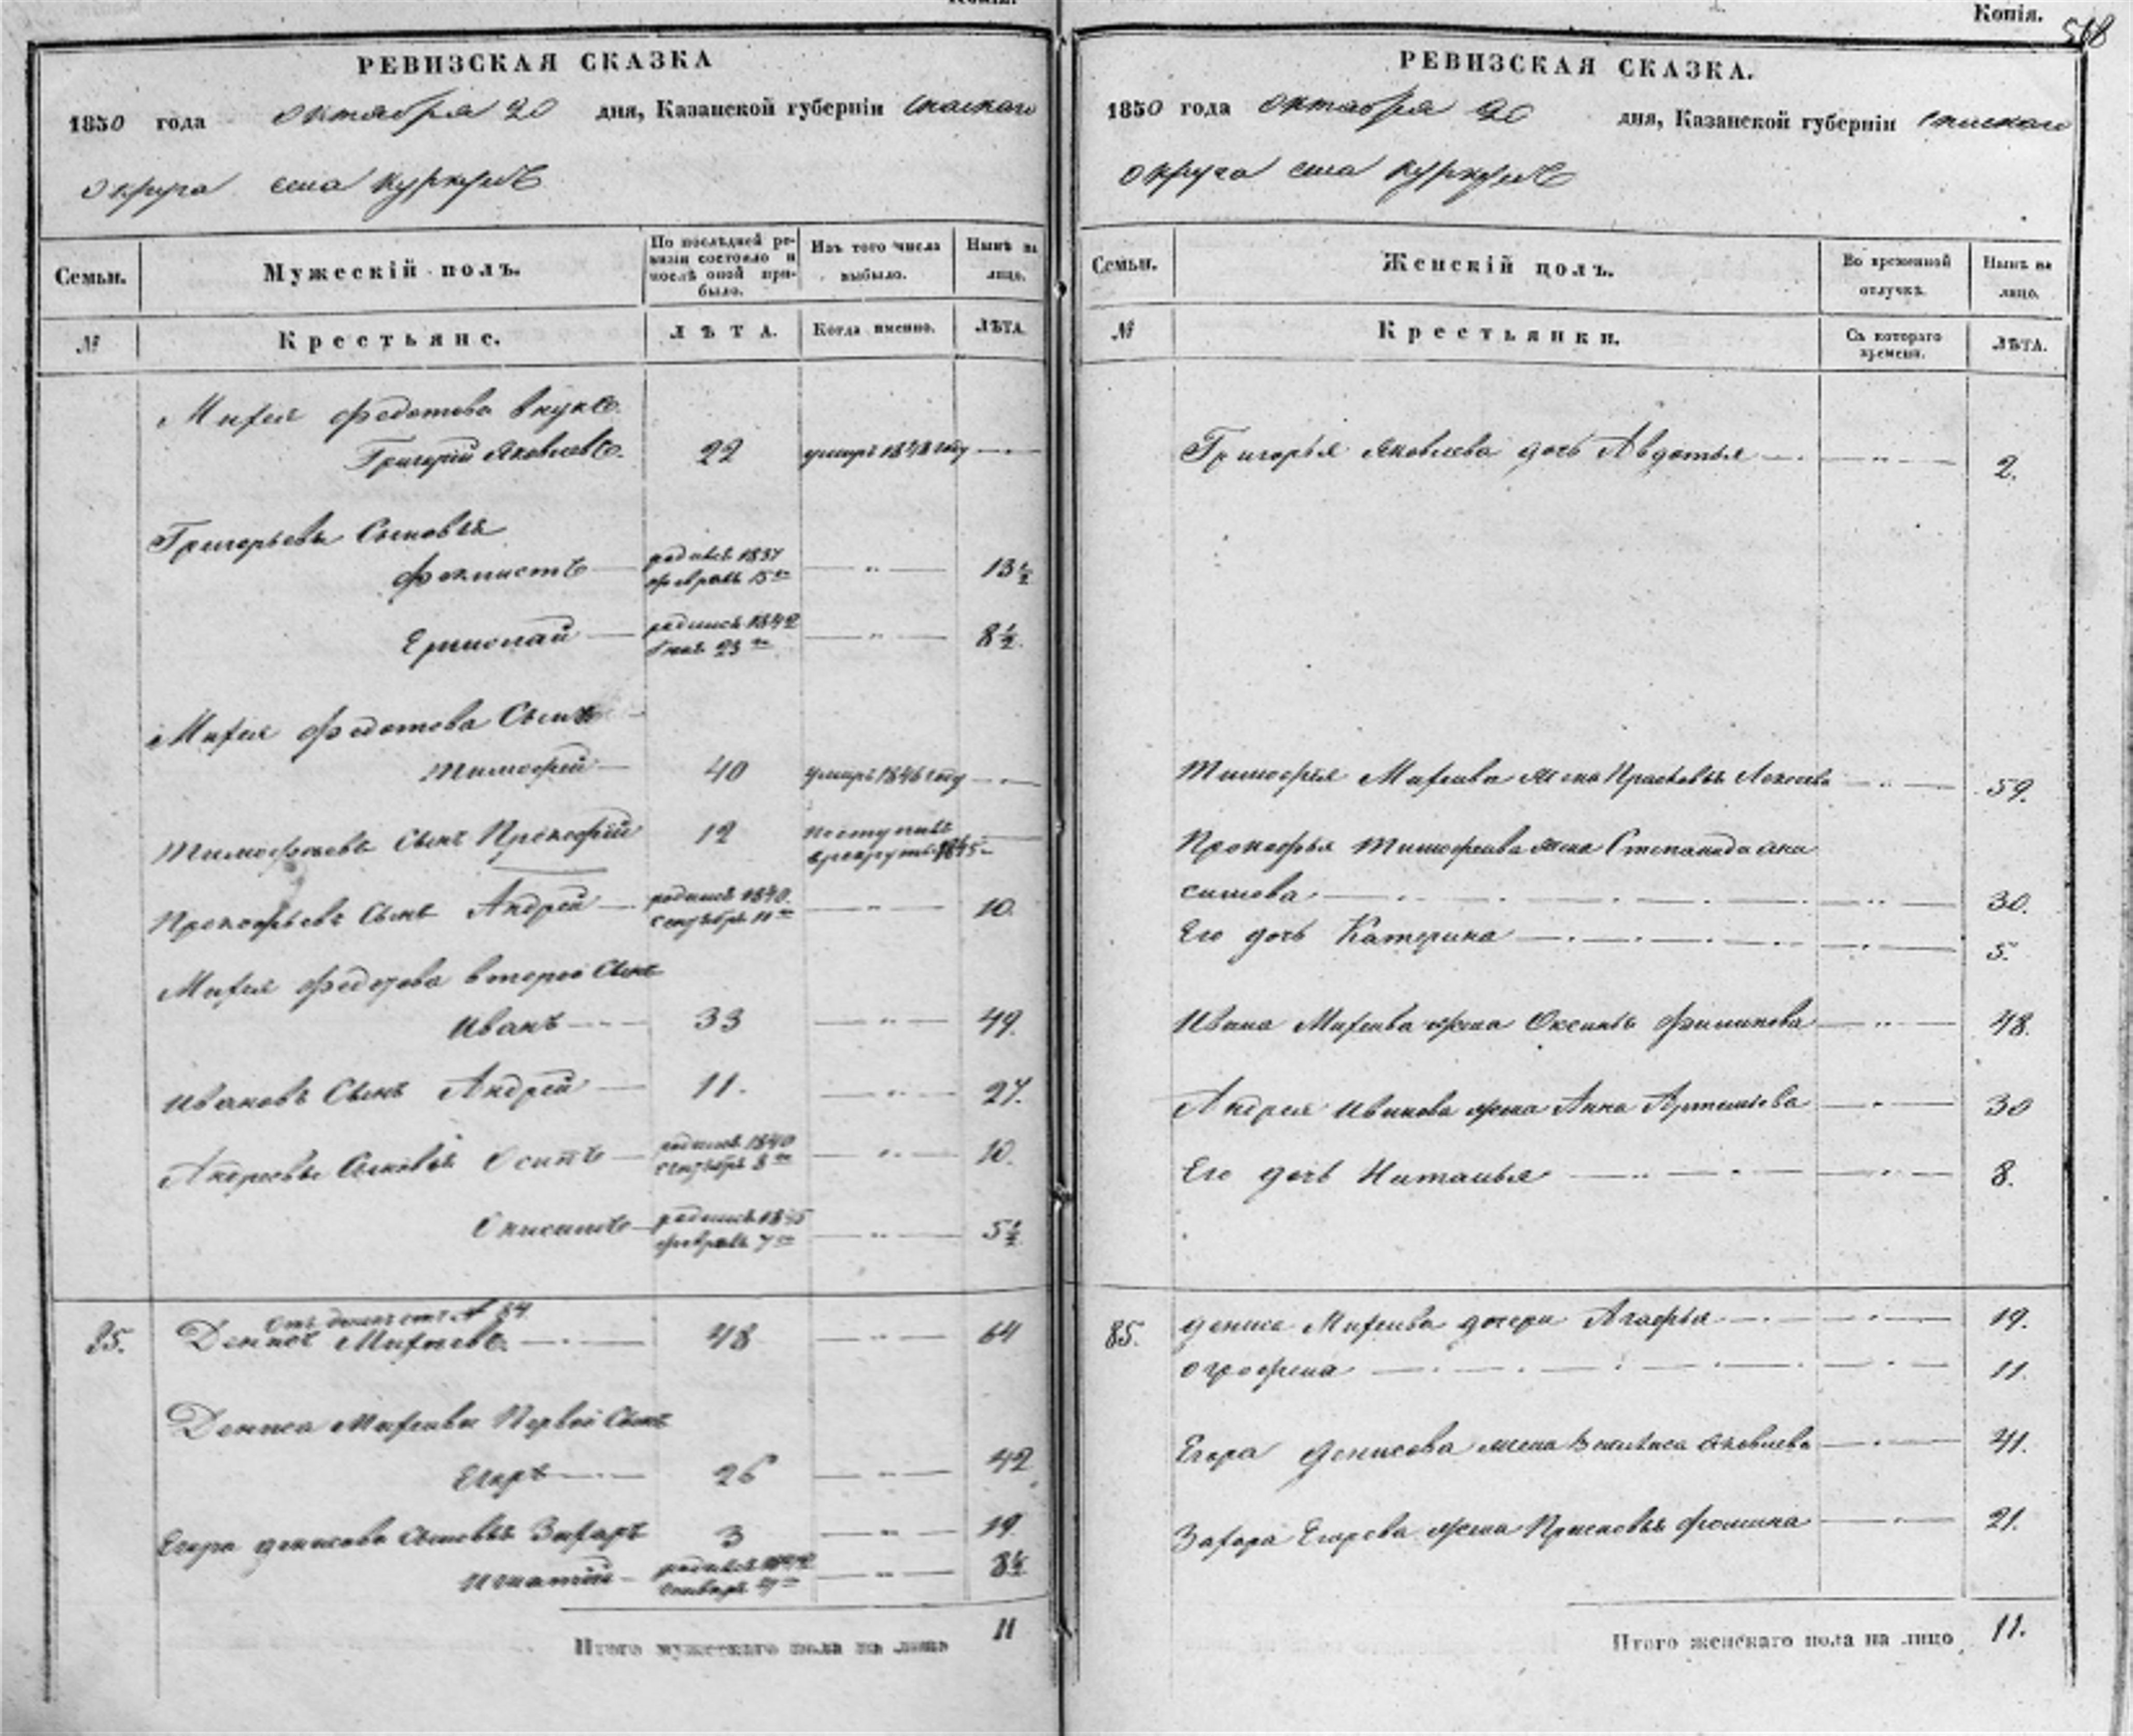 Копія.
518
РЕВИЗСКАЯ СКАЗКА
1850 года октября 20 дня, Казанской губерніи Спаскаго
округа села Куркуль
Семьи.
Мужескій полъ.
По послѣдней ре-
визіи состояло и
послѣ оной при-
было.
Изъ того числа
выбыло.
Нынѣ на
лицо.
№
Крестьяне.
ЛѢТА.
Когда именно.
ЛѢТА.
Михея Федотова внукъ
Григорій Яковлевъ. 22 умеръ 1848 году
Григорьевы Сыновья
Феклистъ родился 1837 13½
февраля 15го
Ермолай родился 1842 8½
23го
Михея Федотова Сынъ
Тимофей 40 умеръ 1846 году
Тимофеевъ Сынъ Прокофій 12 поступилъ
в рекруты 1845
Прокофьевъ Сынъ Андрей родился 1840 10.
сентября 11го
Михея Федотова второй Сынъ
Иванъ 33 49.
Ивановъ Сынъ Андрей 11. 27.
Андреевы Сыновья Осипъ родился 1840 10.
сентября 8го
Онисимъ родился 1845 5½
февраля 7го
Отъ № 84
85. Денисъ Михеевъ 48 64
Дениса Михеева Первой Сынъ
Егоръ 26 42
Егора Денисова Сыновья Захаръ 3 19
Игнатій родился 1842 8½
Генваря
Итого мужескаго пола на лицо 11
РЕВИЗСКАЯ СКАЗКА.
1850 года октября 20 дня, Казанской губерніи Спаскаго
округа села Куркуль
Семьи.
Женскій полъ.
Во временной
отлучкѣ.
Нынѣ на
лицо.
№
Крестьянки.
Съ котораго
времени.
ЛѢТА.
Григорья Яковлева дочь Авдотья 2.
Тимофея Михеева жена Прасковья Лексеева 59.
Прокофья Тимофеева жена Степанида Ани
симова 30.
Его дочь Катерина 5.
Ивана Михеева жена Оксинья Филипова 48.
Андрея Иванова жена Анна Артемьева 30
Его дочь Наталья 8.
85. Дениса Михеева дочери Агафья 19.
Огрофена 11.
Егора Денисова жена Василиса Яковлева 41.
Захара Егорова жена Прасковья Фомина 21.
Итого женскаго пола на лицо 11.